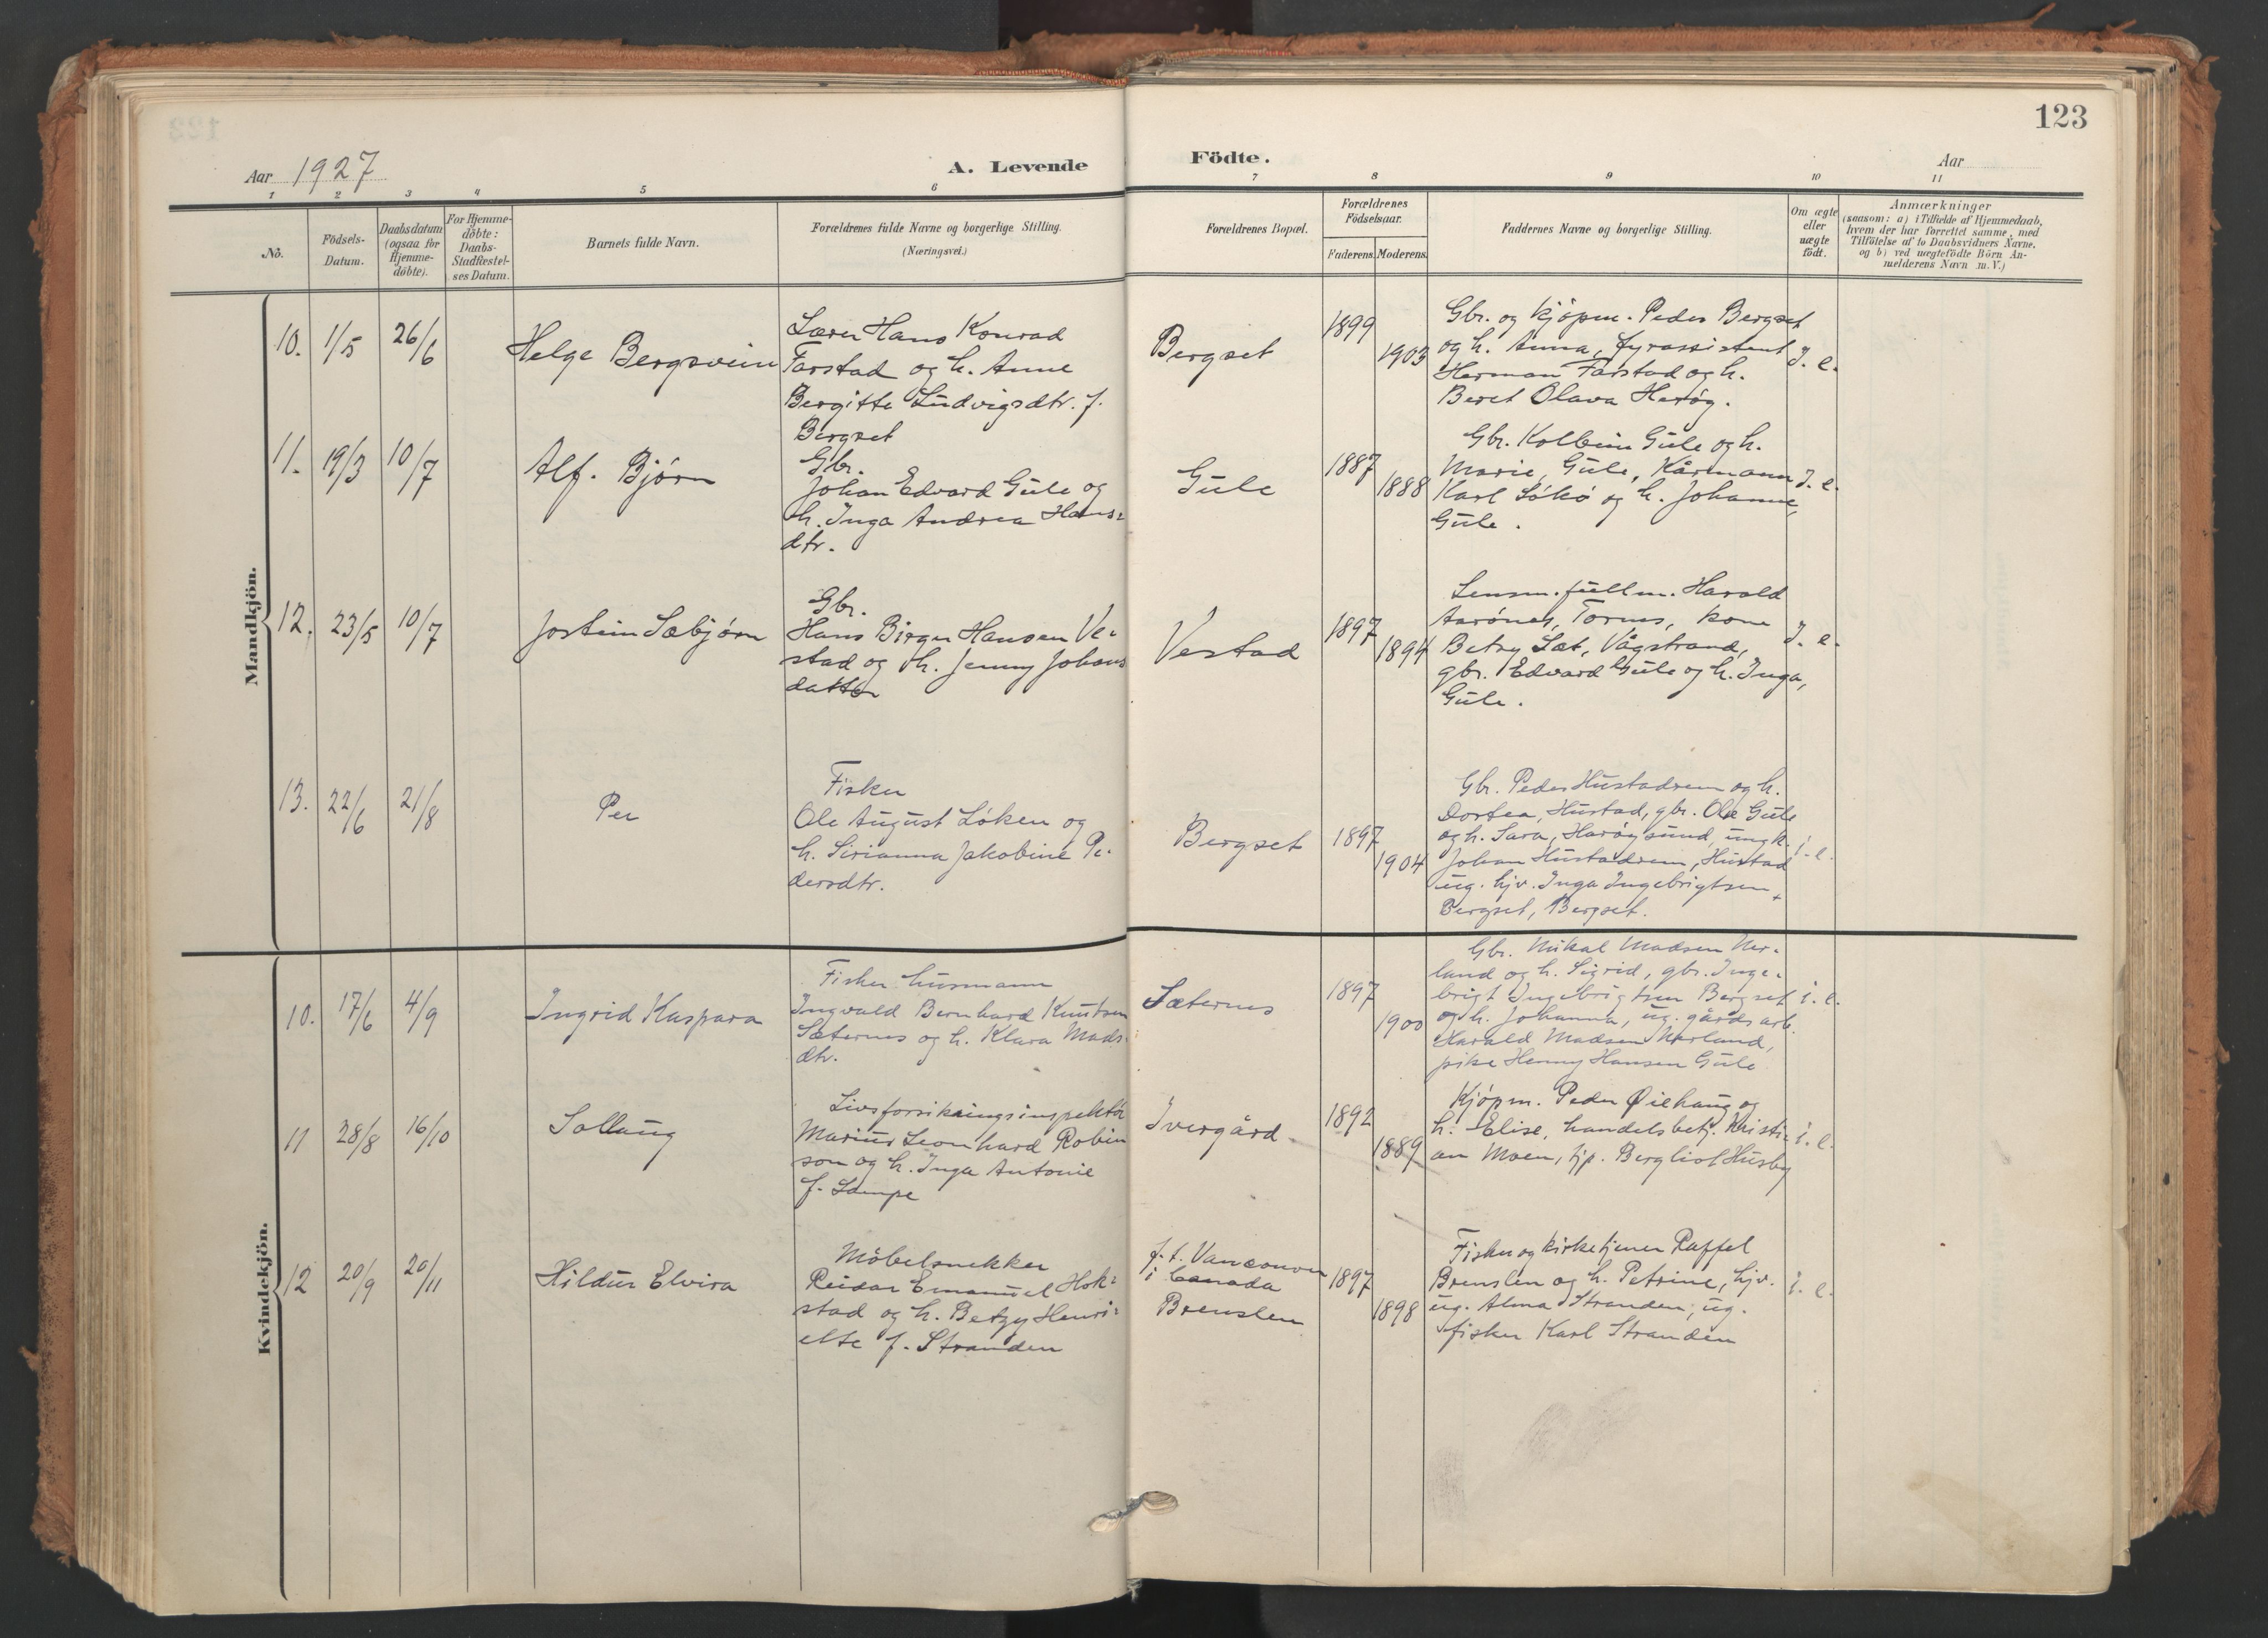 123
Aar 1927
A. Levende Födte.
Aar
1 2 3 4 5 6 7 8 9 10 11
No.
Födsels-
Datum.
Daabsdatum
(ogsaa for
Hjemme-
döbte).
For Hjemme-
döbte:
Daabs-
Stadfæstel-
ses Datum.
Barnets fulde Navn.
Forældrenes fulde Navne og borgerlige Stilling.
(Næringsvei.)
Forældrenes Bopæl.
Forældrenes
Födselsaar.
Faderens Moderens
Faddernes Navne og borgerlige Stilling.
Om ægte
eller
uægte
födt.
Anmærkninger
(saasom: a) i Tilfælde af Hjemmedaab,
hvem der har forrettet samme, med
Tilföielse af to Daabsvidners Navne.
og b) ved uægtefödte Börn An-
melderens Navn m. V.)
Mandkjön.
10. 1/5 26/6
Helge Bergsvein
Lærer Hans Konrad
Farstad og h. Anne
Bergitte Ludvigsdtr. f.
Bergset
Bergset
1899
1903
Gbr. og kjöpm. Peder Bergset
og h. Anna, fyrassistent
Herman Farstad og h.
Beret Olava Herög.
I. e.
11. 19/3 10/7
Alf. Bjørn
Gbr.
Johan Edvard Gule og
h. Inga Andrea Hans-
dtr.
Gule
1887
1888
Gbr. Kolbein Gule og h.
Marie, Gule, Kårmann
Karl Sökö og h. Johanne,
Gule.
I. e.
12. 23/5 10/7
Jostein Sæbjørn
Gbr.
Hans Birger Hansen Ve-
stad og h. Jenny Johans
datter
Vestad
1897
1894
Lensm. fullm. Harald
Aarönes, Tornes, kone
Betzy Sæt, Vågstrand,
gbr. Edvard Gule og h. Inga,
Gule.
I. e.
13. 22/6 21/8
Per
Fisker
Ole August Løken og
h. Sirianna Jakobine Pe-
dersdtr.
Bergset
1897
1904
Gbr. Peder Hustadrem og h.
Dortea, Hustad, gbr. Ole Gule
og h. Sara, Haröysund, ungk.
Johan Hustadrem, Hustad
ug. hjv. Inga Ingebrigtsen
Bergset, Bergset.
i. e.
Kvindekjön.
10. 17/6 4/9
Ingrid Kaspara
Fisker husmann
Ingvald Bernhard Knutsen
Sæternes og h. Klara Mads-
dtr.
Sæternes
1897
1900
Gbr. Mikal Madsen Ner-
land og h. Sigrid, gbr. Inge-
brigt Ingebrigtsen Bergset
og h. Johanna, ug. gårdsarb.
Harald Madsen Nerland,
pike Henny Hansen Gule
i. e.
11 28/8 16/10
Sollaug
Livsforsikringsinspektør
Marius Leonhard Robin
son og h. Inga Antonie
f. Lampe
Ivergård
1892
1889
Kjöpm. Peder Øiehaug og
h. Elise, handelsbetj. Kristi-
an Moen, tjp. Bergliot Husby
i. e.
12 20/9 20/11
Hildur Elvira
Möbelsnekker
Reidar Emanuel Hok-
stad og h. Betzy Henri-
ette f. Stranden
f. t. Vancouver
i Canada
Brenslen
1897
1898
Fisker og kirketjener Raffel
Brenslen og h. Petrine, hjv.
ug. Alma Stranden, ug.
fisker Karl Stranden
i. e.